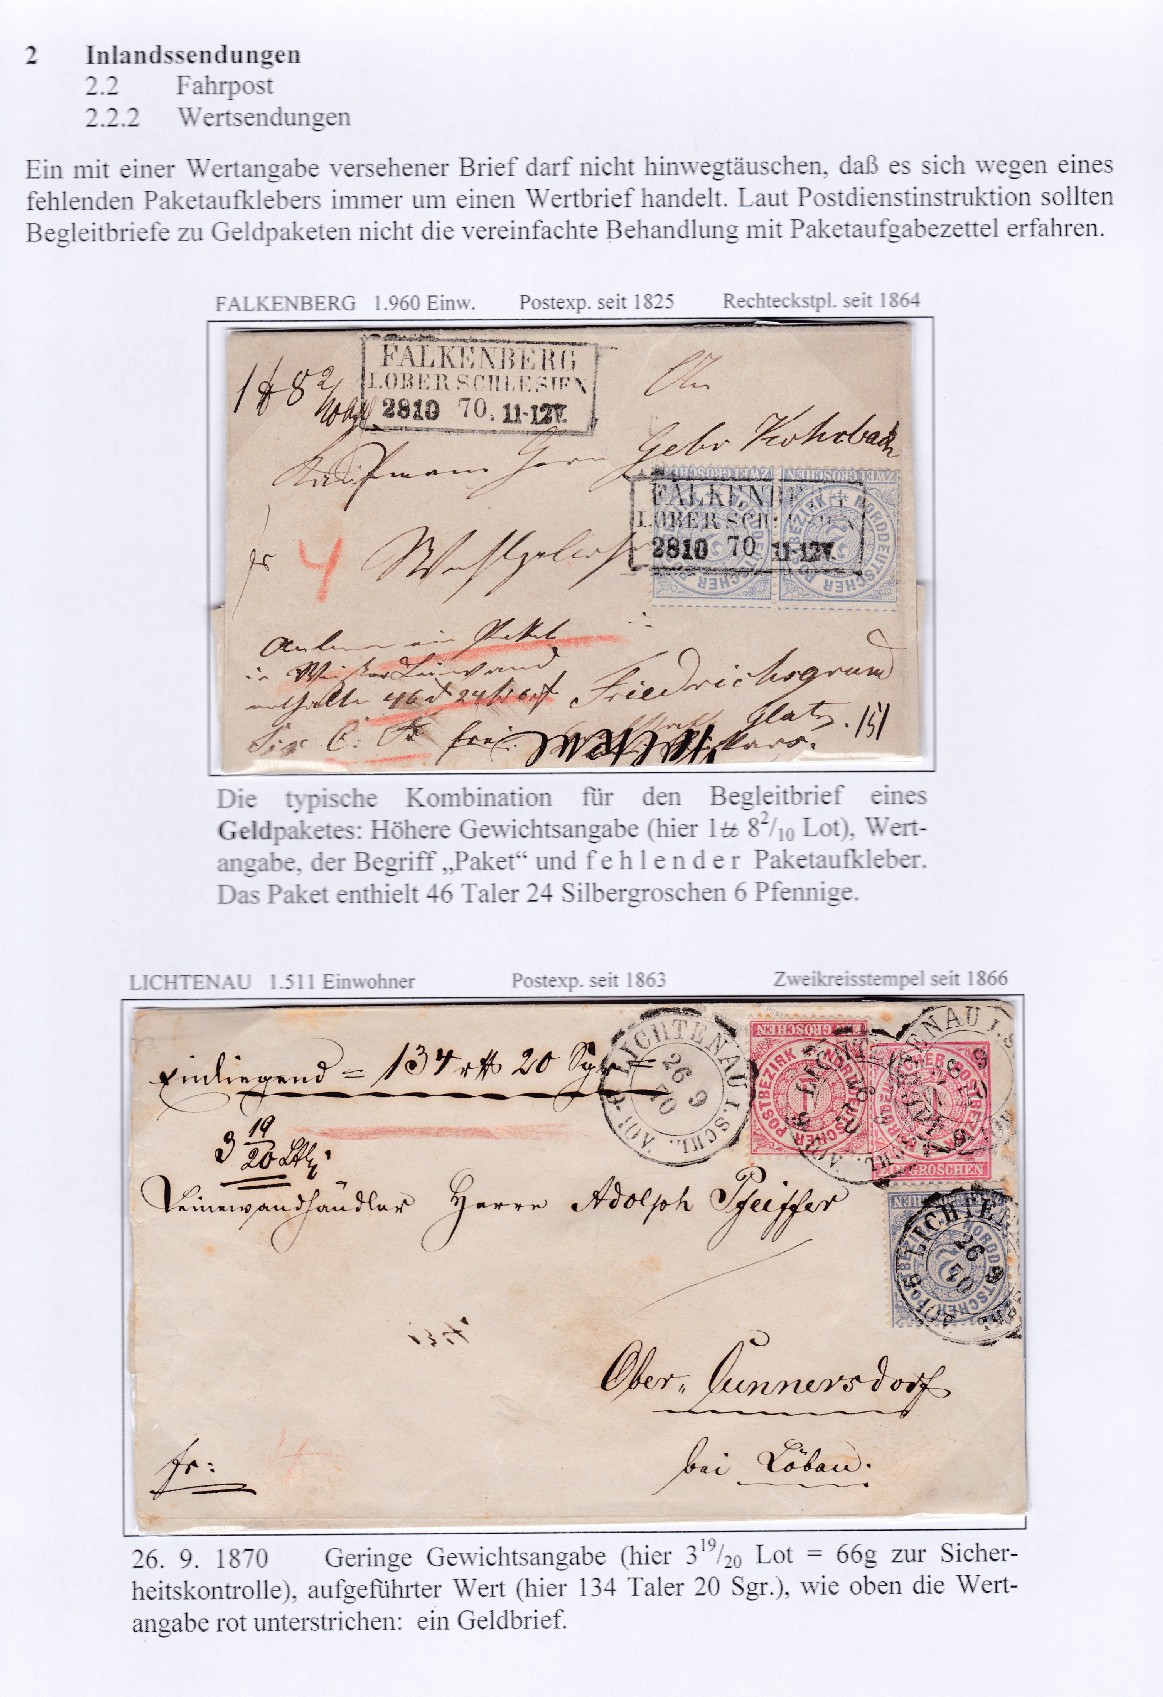 2 Inlandssendungen
2.2 Fahrpost
2.2.2 Wertsendungen
Ein mit einer Wertangabe versehener Brief darf nicht hinwegtäuschen, daß es sich wegen eines
fehlenden Paketaufklebers immer um einen Wertbrief handelt. Laut Postdienstinstruktion sollten
Begleitbriefe zu Geldpaketen nicht die vereinfachte Behandlung mit Paketaufgabezettel erfahren.
FALKENBERG 1.960 Einw. Postexp. seit 1825 Rechteckstpl. seit 1864
FALKENBERG
I. OBER SCHLESIEN
2810 70. 11-12V.
An
Gebr
Kaufmann Herrn
ZWEI GROSCHEN ZWEI GROSCHEN
NORDDEUTSCHER POSTBEZIRK 2
FALKENBE
I. OBER SCH
2810 70 11-12V.
fr 4
Friedrichsgrund
frei
Glatz
151
Die typische Kombination für den Begleitbrief eines
Geldpaketes: Höhere Gewichtsangabe (hier 1℔ 8²/₁₀ Lot), Wert-
angabe, der Begriff „Paket“ und f e h l e n d e r Paketaufkleber.
Das Paket enthielt 46 Taler 24 Silbergroschen 6 Pfennige.
LICHTENAU 1.511 Einwohner Postexp. seit 1863 Zweikreisstempel seit 1866
Einliegend = 134 rℓ 20 Sgr =
LICHTENAU I. SCHL.
26 9
70
GROSCHEN
NORDDEUTSCHER POSTBEZIRK 1
3 19/20 Lth
Leinewandhändler Herrn Adolph Pfeiffer
Ober-Cunnersdorf
bei Löbau.
fr:
26. 9. 1870 Geringe Gewichtsangabe (hier 3¹⁹/₂₀ Lot = 66g zur Sicher-
heitskontrolle), aufgeführter Wert (hier 134 Taler 20 Sgr.), wie oben die Wert-
angabe rot unterstrichen: ein Geldbrief.